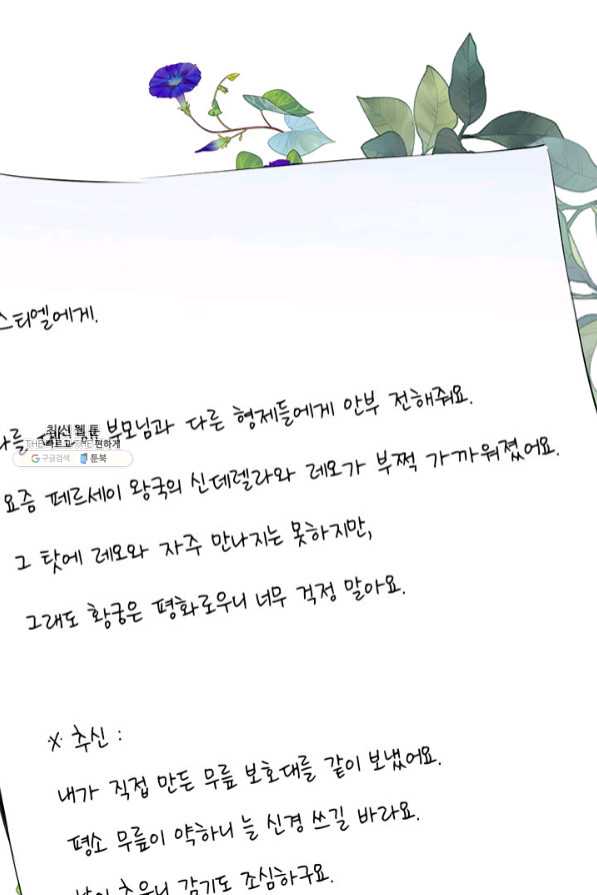 스티엘에게.
부모님과 다른 형제들에게 안부 전해줘요.
최신 웹툰
빠르고 편하게
구글검색 툰북
요즘 페르세이 왕국의 신데렐라와 레모가 부쩍 가까워졌어요.
그 탓에 레모와 자주 만나지는 못하지만,
그래도 황궁은 평화로우니 너무 걱정 말아요.
※ 추신 :
내가 직접 만든 무릎 보호대를 같이 보냈어요.
평소 무릎이 약하니 늘 신경 쓰길 바라요.
추우니 감기도 조심하구요.